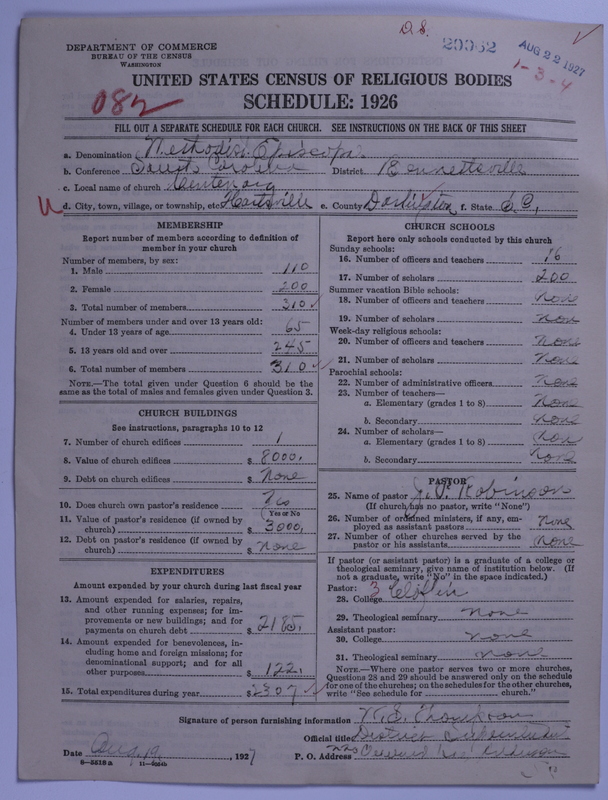 D.S.
29962
AUG 22 1927
1-3-4
DEPARTMENT OF COMMERCE
BUREAU OF THE CENSUS
WASHINGTON
UNITED STATES CENSUS OF RELIGIOUS BODIES
SCHEDULE: 1926
082
FILL OUT A SEPARATE SCHEDULE FOR EACH CHURCH. SEE INSTRUCTIONS ON THE BACK OF THIS SHEET
a. Denomination Methodist Episcopal
b. Conference South Carolina District Bennettsville
c. Local name of church Centenary
d. City, town, village, or township, etc. Hartsville e. County Darlington f. State S.C.
MEMBERSHIP
Report number of members according to definition of
member in your church
Number of members, by sex:
1. Male 110
2. Female 200
3. Total number of members 310
Number of members under and over 13 years old:
4. Under 13 years of age 65
5. 13 years old and over 245
6. Total number of members 310
NOTE.—The total given under Question 6 should be the
same as the total of males and females given under Question 3.
CHURCH BUILDINGS
See instructions, paragraphs 10 to 12
7. Number of church edifices 1
8. Value of church edifices $ 8000.
9. Debt on church edifices $ None
10. Does church own pastor's residence Yes
(Yes or No)
11. Value of pastor's residence (if owned by
church) $ 3000.
12. Debt on pastor's residence (if owned by
church) $ None
EXPENDITURES
Amount expended by your church during last fiscal year
13. Amount expended for salaries, repairs,
and other running expenses; for im-
provements or new buildings; and for
payments on church debt $ 2185.
14. Amount expended for benevolences, in-
cluding home and foreign missions; for
denominational support; and for all
other purposes $ 122.
15. Total expenditures during year $ 2307
CHURCH SCHOOLS
Report here only schools conducted by this church
Sunday schools:
16. Number of officers and teachers 16
17. Number of scholars 200
Summer vacation Bible schools:
18. Number of officers and teachers None
19. Number of scholars None
Week-day religious schools:
20. Number of officers and teachers None
21. Number of scholars None
Parochial schools:
22. Number of administrative officers None
23. Number of teachers—
a. Elementary (grades 1 to 8) None
b. Secondary None
24. Number of scholars—
a. Elementary (grades 1 to 8) None
b. Secondary None
PASTOR
25. Name of pastor Robinson
(If church has no pastor, write "None")
26. Number of ordained ministers, if any, em-
ployed as assistant pastors None
27. Number of other churches served by the
pastor or his assistants None
If pastor (or assistant pastor) is a graduate of a college or
theological seminary, give name of institution below. (If
not a graduate, write "No" in the space indicated.)
Pastor:
28. College 3 Claflin
29. Theological seminary None
Assistant pastor:
30. College None
31. Theological seminary None
NOTE.—Where one pastor serves two or more churches,
Questions 28 and 29 should be answered only on the schedule
for one of the churches; on the schedules for the other churches,
write "See schedule for church."
Signature of person furnishing information Thompson
Official title District Superintendent
Date Aug. 19, 1927 P. O. Address
8—5518 a